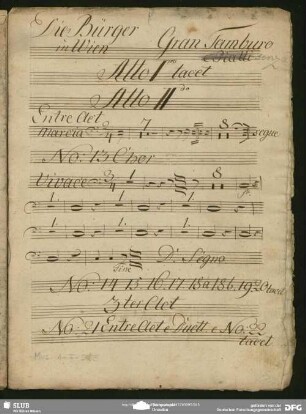 Die Bürger
in Wien
Gran Tamburo
Atto I mo tacet
Atto II do
Entre Act
Marcia 7. 8 segue
No: 13 Chor
Vivace 3/4 1. 1. 8
1. 1. 1.
1. 1. 1.
fine D. Segno
No: 14 15 16. 17. 18a 18b. 19. 20 tacet
3ter Act
No: 21 Entre Act e Duett e No: 22
tacet
SLUB
DFG